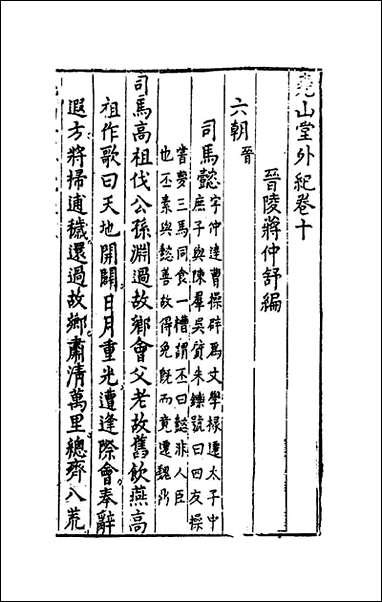 堯山堂外紀卷十
晉陵蔣仲舒編
六朝晉
司馬懿字仲達曹操辟為文學掾遷太子中
庶子與陳羣吳質朱鑠號曰四友操
嘗夢三馬同食一槽謂丕曰懿非人臣
也丕素與懿善故得免旣而竟遷魏祚
司馬高祖伐公孫淵過故鄉會父老故舊飲燕高
祖作歌曰天地開闢日月重光遭逢際會奉辭
遐方將掃逋穢還過故鄉肅清萬里總齊八荒